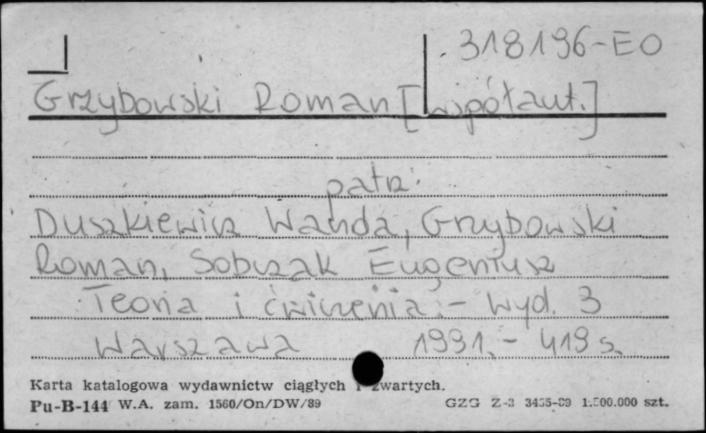 318196-EO
Grzybowski Roman [współaut.]
patrz:
Duszkiewicz Wanda, Grzybowski
Roman, Sobczak Eugeniusz
Teoria i ćwiczenia.- Wyd. 3
Warszawa 1991.- 419 s.
Karta katalogowa wydawnictw ciągłych i zwartych.
Pu-B-144 W.A. zam. 1560/On/DW/89 GZG Z-3 1.500.000 szt.